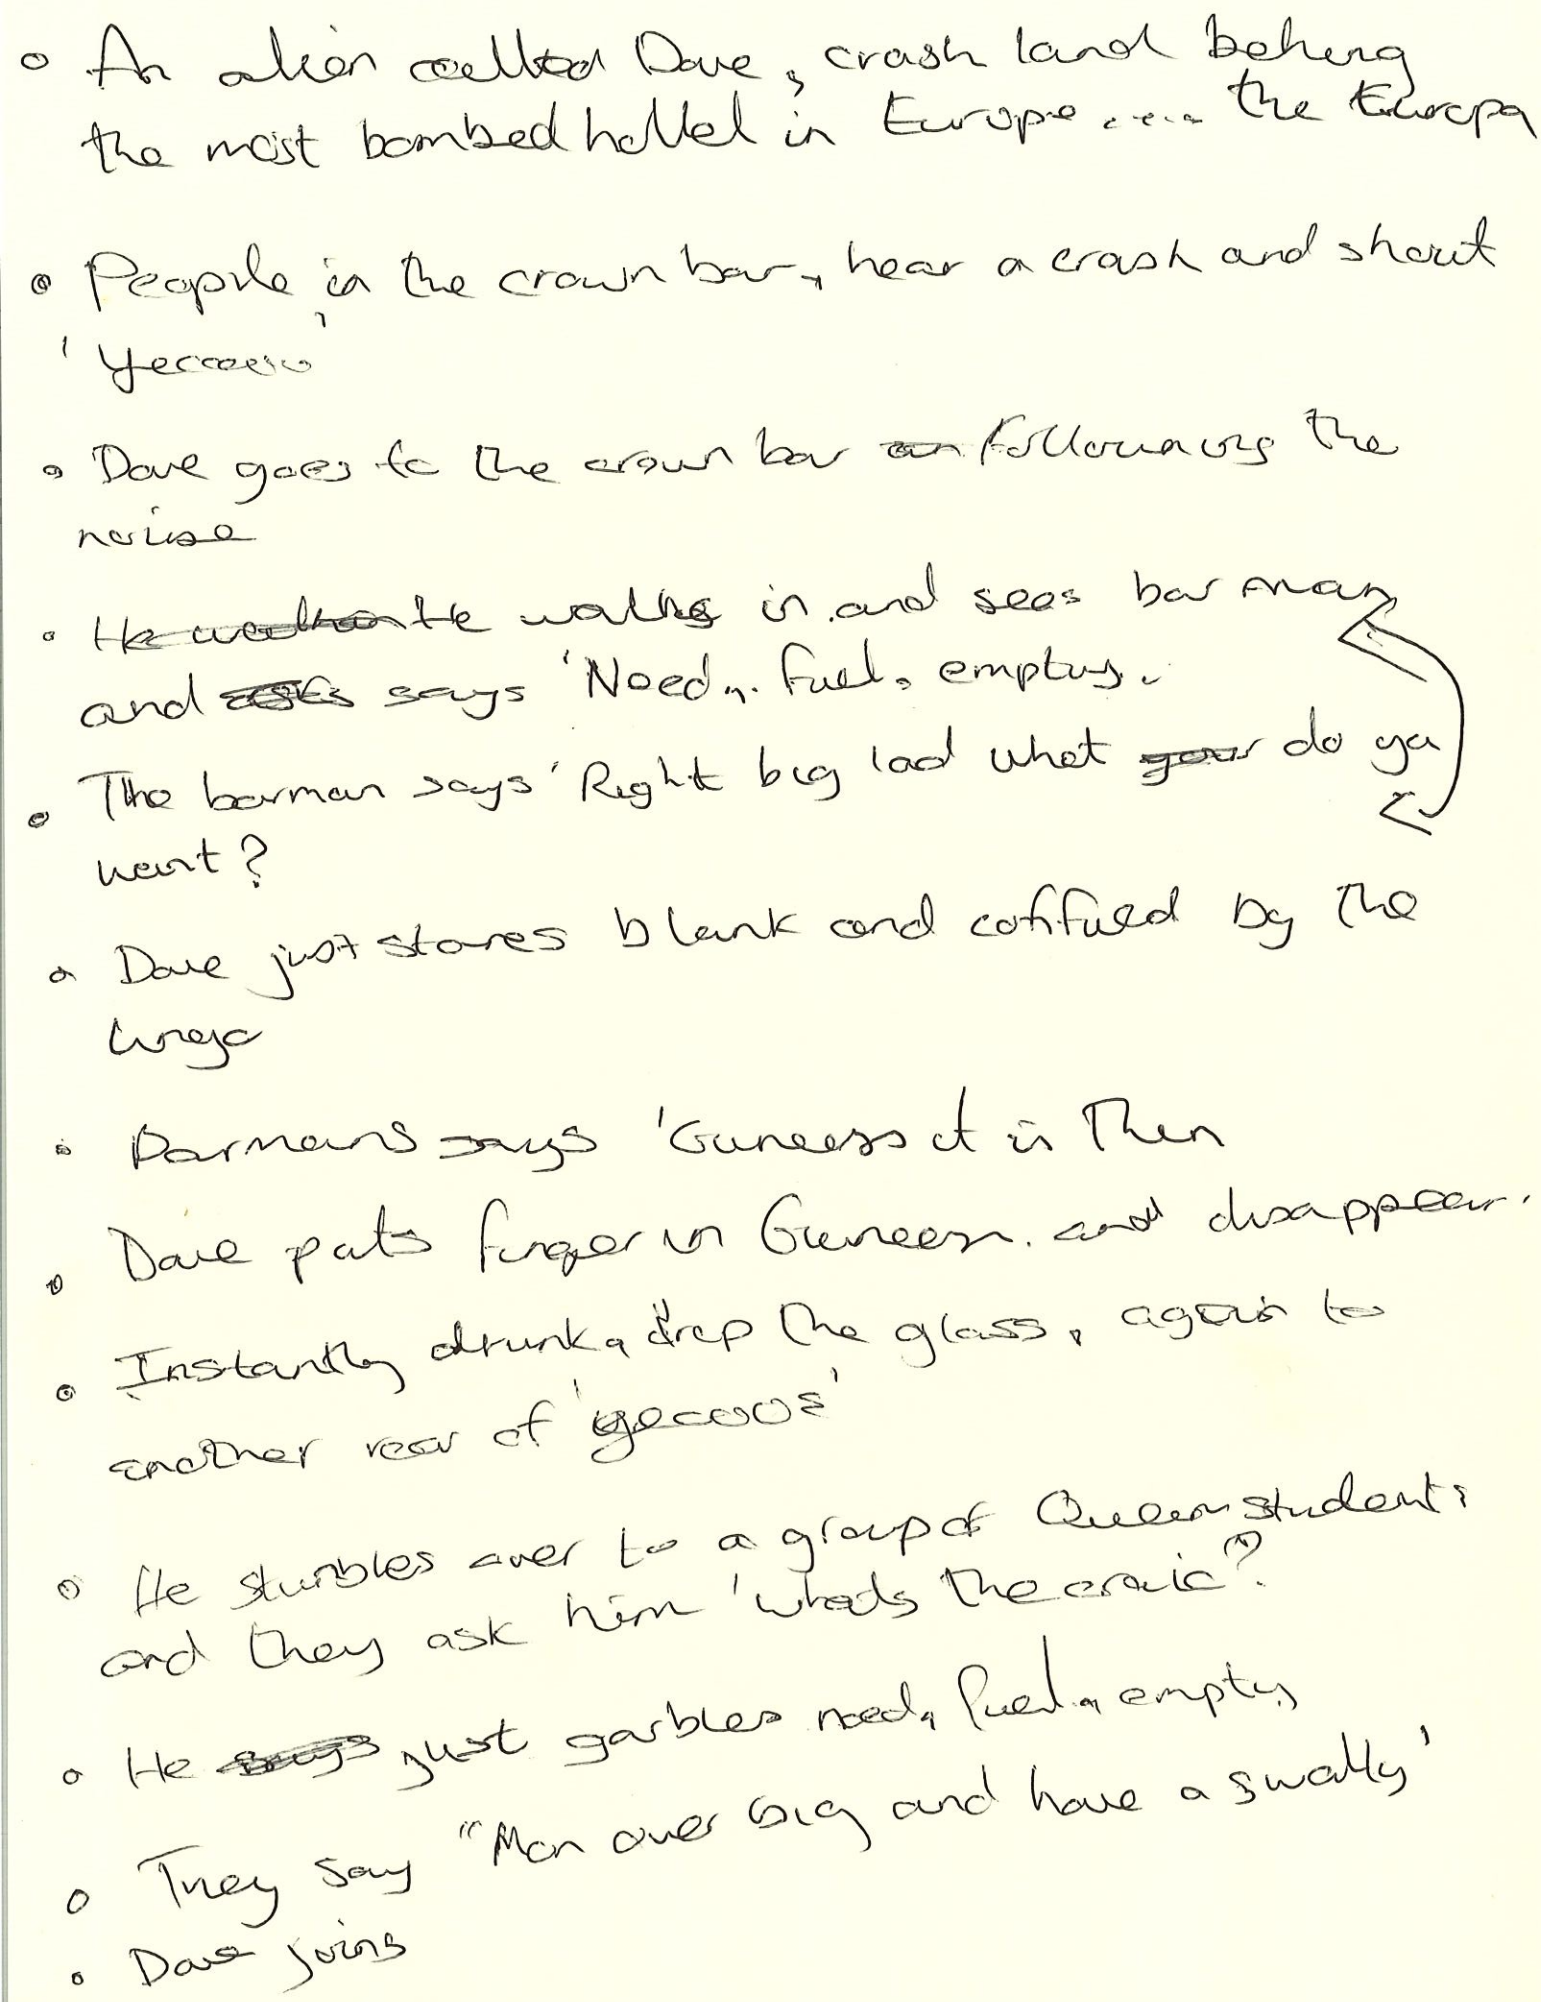 An alien called Dave, crash land behing
the most bombed hottel in Europe .... the Europa
People in the crown bar, hear a crash and shout
'Yeooooo'
Dave goes to the crown bar following the
noise
He walks in and sees bar man
and says 'Need, fuel, empty.
The barman says 'Right big lad what do ya
want?
Dave just stares blank and confused by the
lingo
Barmans says 'Guneess it is then
Dave puts finger in Guneess. and disappear.
Instantly drunk, drop the glass, again to
another roar of 'yeooos'
He stumbles over to a group of Queens students
and they ask him 'whats the craic'?
He just garbles need, fuel, empty
They say "Mon over big and have a swally'
Dave joins